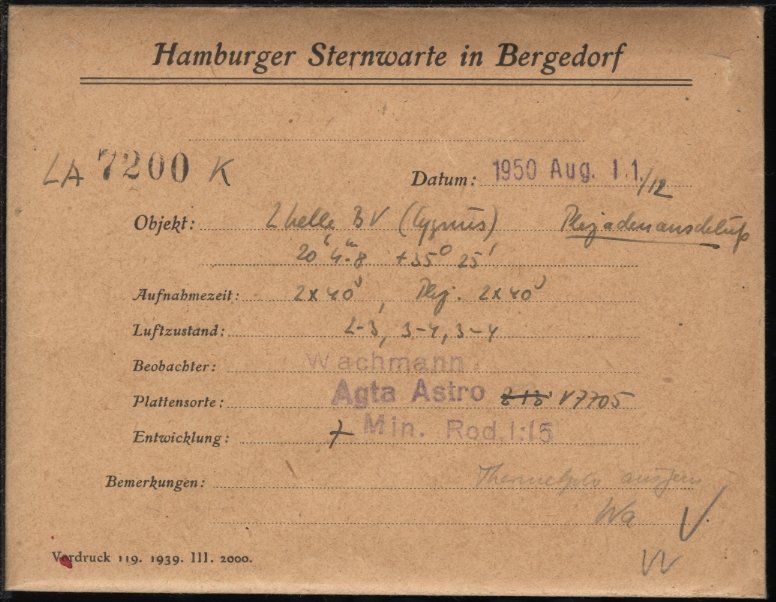 Hamburger Sternwarte in Bergedorf
LA 7200 K
Datum: 1950 Aug. 11./12
Objekt: 2 helle BV (Cygnus) Plejadenanschluß
20h 4m.8 +35° 25'
Aufnahmezeit: 2x40m, Plej. 2x40m
Luftzustand: 2-3, 3-4, 3-4
Beobachter: Wachmann
Plattensorte: Agfa Astro V7705
Entwicklung: Min. Rod. 1:15
Bemerkungen:
Wa V
Vordruck 119. 1939. III. 2000.